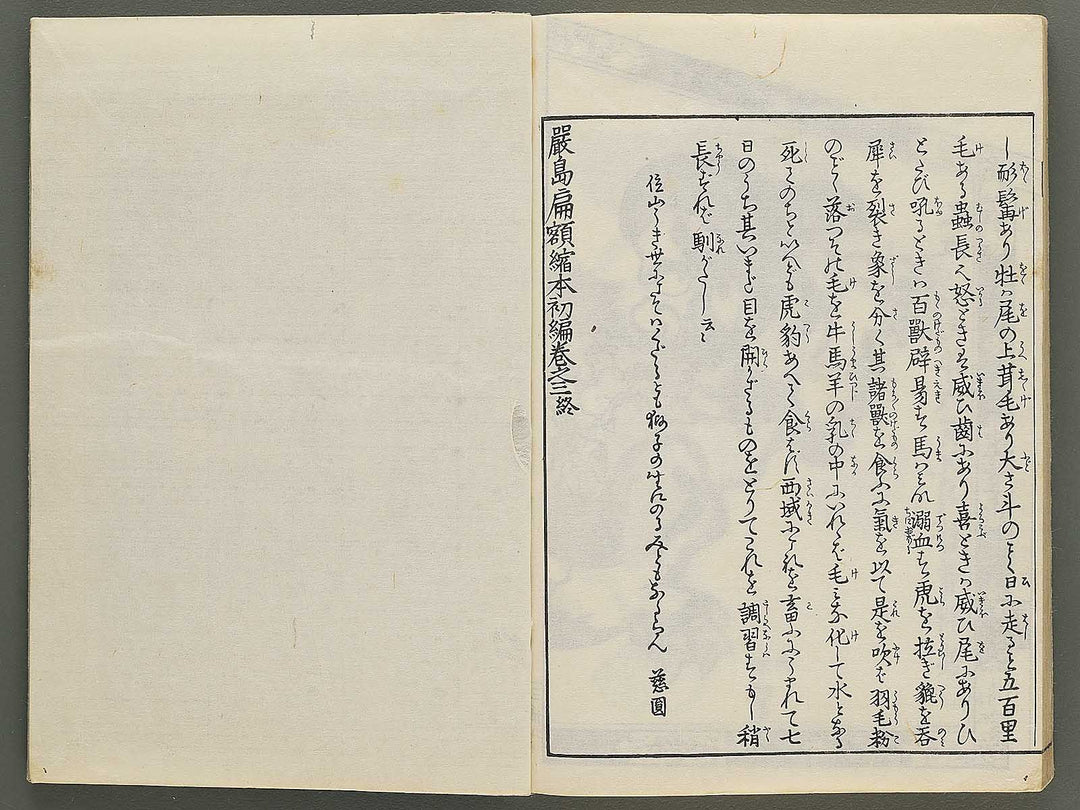 し耏髯あり牡ハ尾の上茸毛あり大さ斗のごとく日に走ること五百里
毛ある蟲の長たり怒ときハ威ひ齒にあり喜ときハ威ひ尾にありひ
とたび吼るときハ百獸辟易す馬ハみな溺血す虎を拉ぎ貔を呑
犀を裂き象を分く其諸獸を食ふに氣を以て是を吹ば羽毛粉
のごとく落つその毛を牛馬羊の乳の中にいれバ毛みな化して水となる
死してのちといへども虎豹あへて食はず西域にこれを畜ふにうまれて七
日のうち其いまだ目を開かざるものをとりてこれを調習すもし稍
長ずれば馴がたし云々
位山うき世にたえてハ 獅子の 慈圓
嚴島扁額縮本初編卷之三終